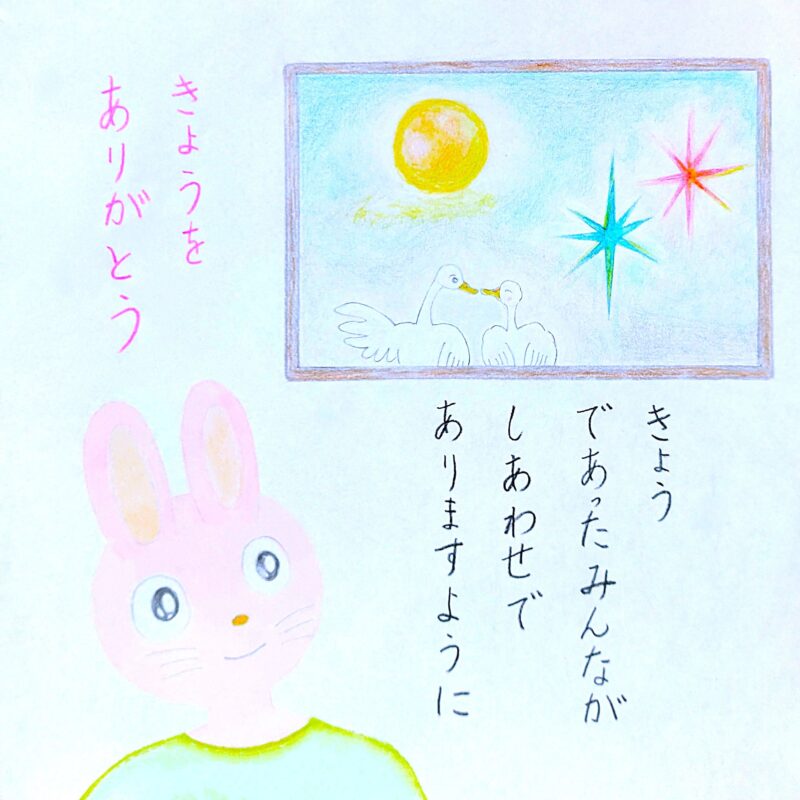 きょうを
ありがとう
きょう
であったみんなが
しあわせで
ありますように